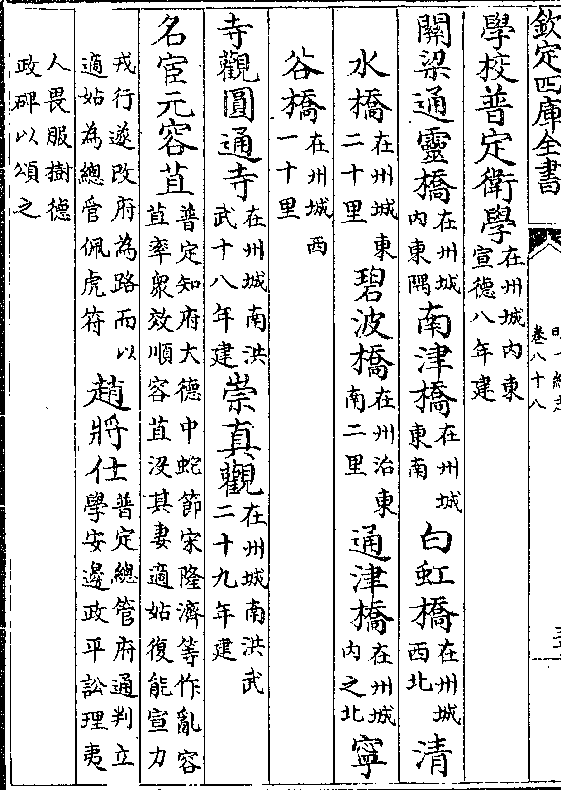 欽定四庫全書
卷八十八
學校普定衛學在州城内東宣德八年建
關梁通靈橋在州城内東隅南津橋在州城東南白虹橋在州城西北清
水橋在州城東二十里碧波橋在州治東南二里通津橋在州城内之北寧
谷橋在州城西一十里
寺觀圓通寺在州城南洪武十八年建崇真觀在州城南洪武二十九年建
名宦元容苴普定知府大德中蛇節宋隆濟等作亂容苴率衆效順容苴没其妻適姑復能宣力
戎行遂改府為路而以適姑為總管佩虎符趙將仕普定總管府通判立學安邊政平訟理夷
人畏服樹德政碑以頌之